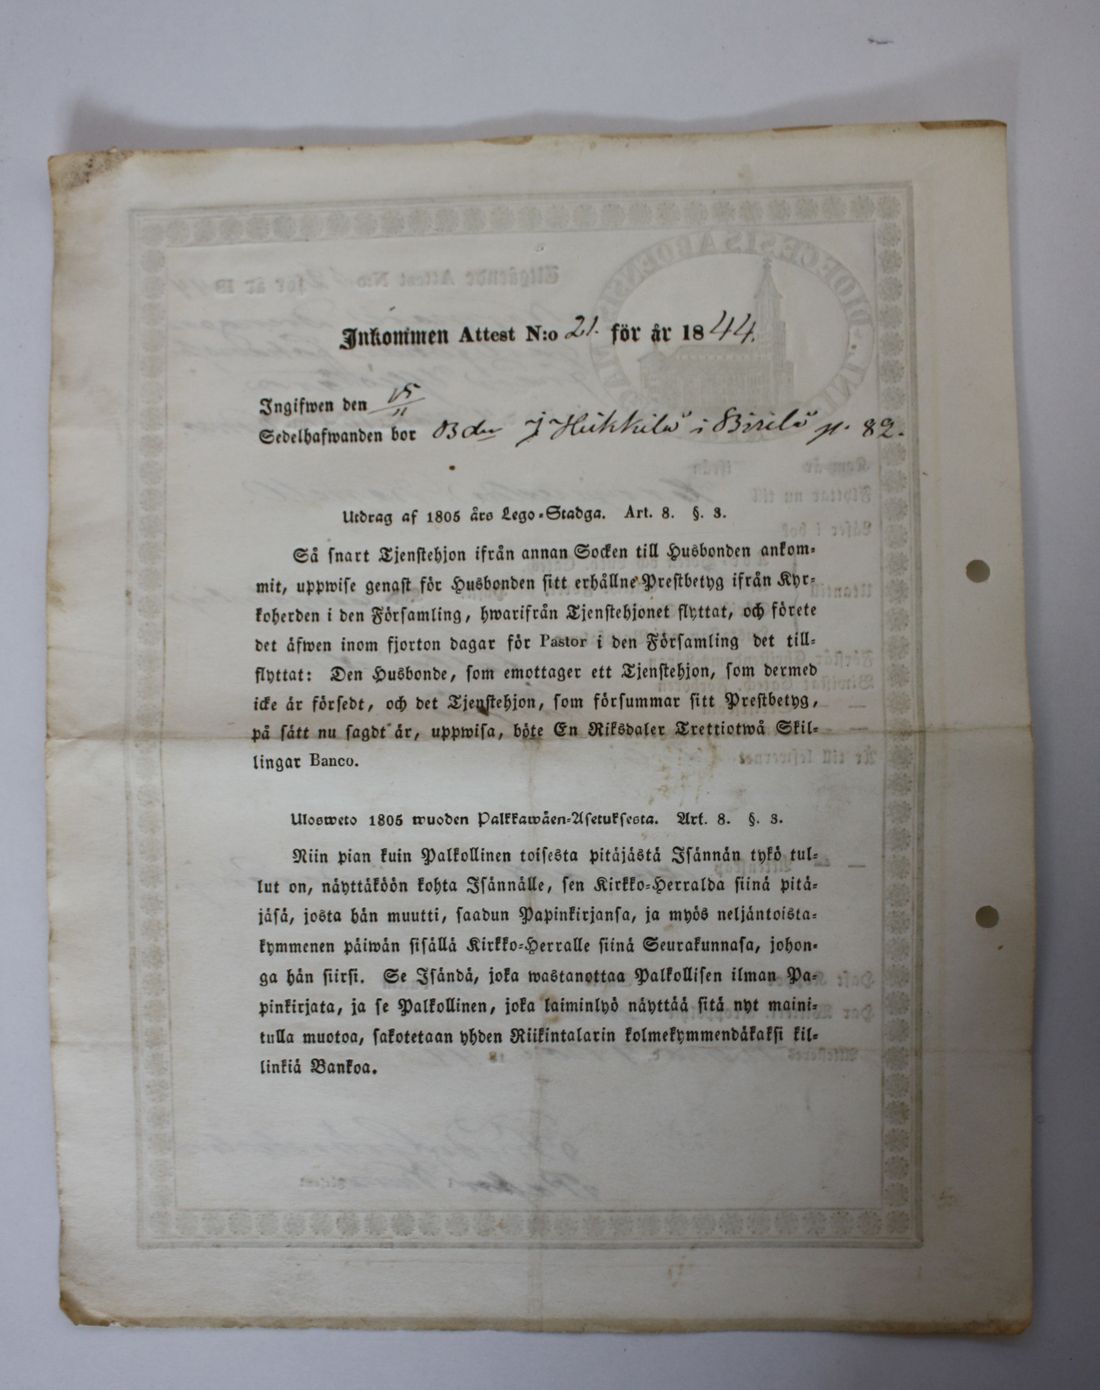 Inkommen Attest N:o 21. för år 1844.
Ingifwen den 15/11
Sedelhafwanden bor i p. 82.
Utdrag af 1805 års Lego-Stadga. Art. 8. §. 3.
Så snart Tjenstehjon ifrån annan Socken till Husbonden ankom-
mit, uppwise genast för Husbonden sitt erhållne Prestbetyg ifrån Kyr-
koherden i den Församling, hwarifrån Tjenstehjonet flyttat, och förete
det äfwen inom fjorton dagar för Pastor i den Församling det till-
flyttat: Den Husbonde, som emottager ett Tjenstehjon, som dermed
icke är försedt, och det Tjenstehjon, som försummar sitt Prestbetyg,
på sätt nu sagdt är, uppwisa, böte En Riksdaler Trettiotwå Skil-
lingar Banco.
Ulosweto 1805 wuoden Palkkawäen-Asetuksesta. Art. 8. §. 3.
Niin pian kuin Palkollinen toisesta pitäjästä Isännän tykö tul-
lut on, näyttäköön kohta Isännälle, sen Kirkko-Herralda siinä pitä-
jäsä, josta hän muutti, saadun Papinkirjansa, ja myös neljäntoista-
kymmenen päiwän sisällä Kirkko-Herralle siinä Seurakunnasa, johon-
ga hän siirsi. Se Isändä, joka wastanottaa Palkollisen ilman Pa-
pinkirjata, ja se Palkollinen, joka laiminlyö näyttää sitä nyt maini-
tulla muotoa, sakotetaan yhden Riikintalarin kolmekymmendäkaksi kil-
linkiä Bankoa.